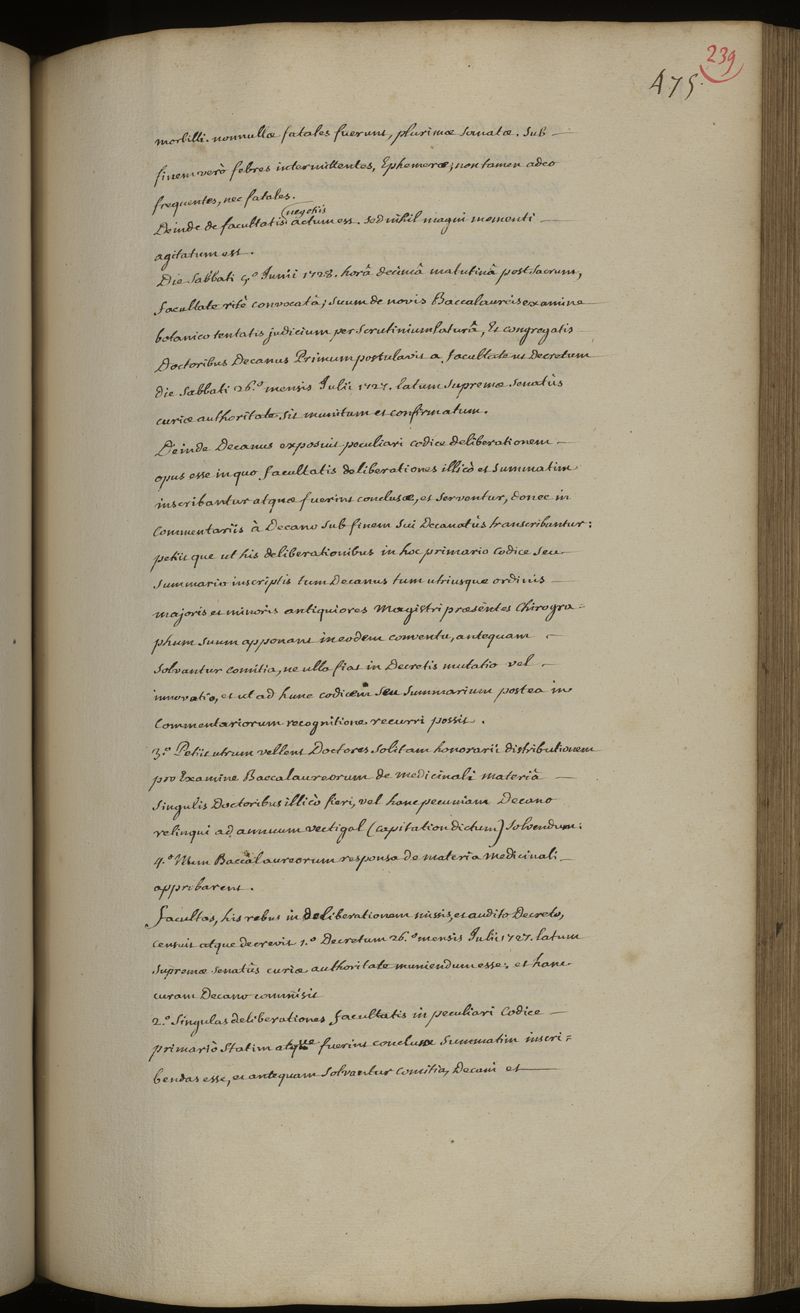 239
475.
morbilli. nonnullæ fatales fuerunt, plurimæ sanatæ. Sub —
finem verò febres intermittentes, Ephemeræ; non tamen adeo
frequentes, nec fatales.
negotiis
Deinde de facultatis actum est. sed nihil magni momenti —
agitatum est.
Die Sabbati 5.º Junii 1728. horâ decimâ matutinâ post sacrum,
facultate ritè convocatâ; suum de novis Baccalaureis examine
botanico tentatis judicium per scrutinium laturâ, et congregatis
Doctoribus Decanus Primum postulavit a facultate ut Decretum
die Sabbati 26.º mensis Julii 1727. latum supremæ senatûs
curiæ authoritate sit munitum et confirmatum.
Deinde Decanus exposuit peculiari codice deliberationem —
opus esse in quo facultatis deliberationes illicò et summatim
inscribantur atque fuerint conclusæ, et serventur, donec in
Commentariis à Decano sub finem sui Decanatûs transcribantur:
petiit que ut his deliberationibus in hoc primario codice seu
summario inscriptis tum Decanus tum utriusque ordinis —
majoris et minoris antiquiores Magistri præsentes Chirogra=
phum suum apponant in eodem conventu, antequam —
solvantur comitia, ne ulla fiat in Decretis mutatio vel —
innovatio, et ut ad hunc codicem seu summarium postea in
Commentariorum recognitione recurri possit.
3.º Petiit utrum vellent Doctores solitam honorarii distributionem
pro Examine Baccalaureorum de medicinali materiâ —
singulis Doctoribus illicò fieri, vel hanc pecuniam Decano
relinqui ad annuum vectigal (capitation dictum) solvendum:
4.º Num Baccalaureorum responsa de materia medicinali —
approbarent.
Facultas, his rebus in deliberationem missis, et audito Decreto,
censuit atque decrevit 1.º Decretum 26.º mensis Julii 1727. latum
supremæ senatûs curiæ authoritate muniendum esse; et hanc
curam Decano commisit
2.º Singulas deliberationes facultatis in peculiari Codice —
primariò statim atque fuerint conclusæ summatim inscri=
bendas esse, et antequam solvantur comitia, Decani et —